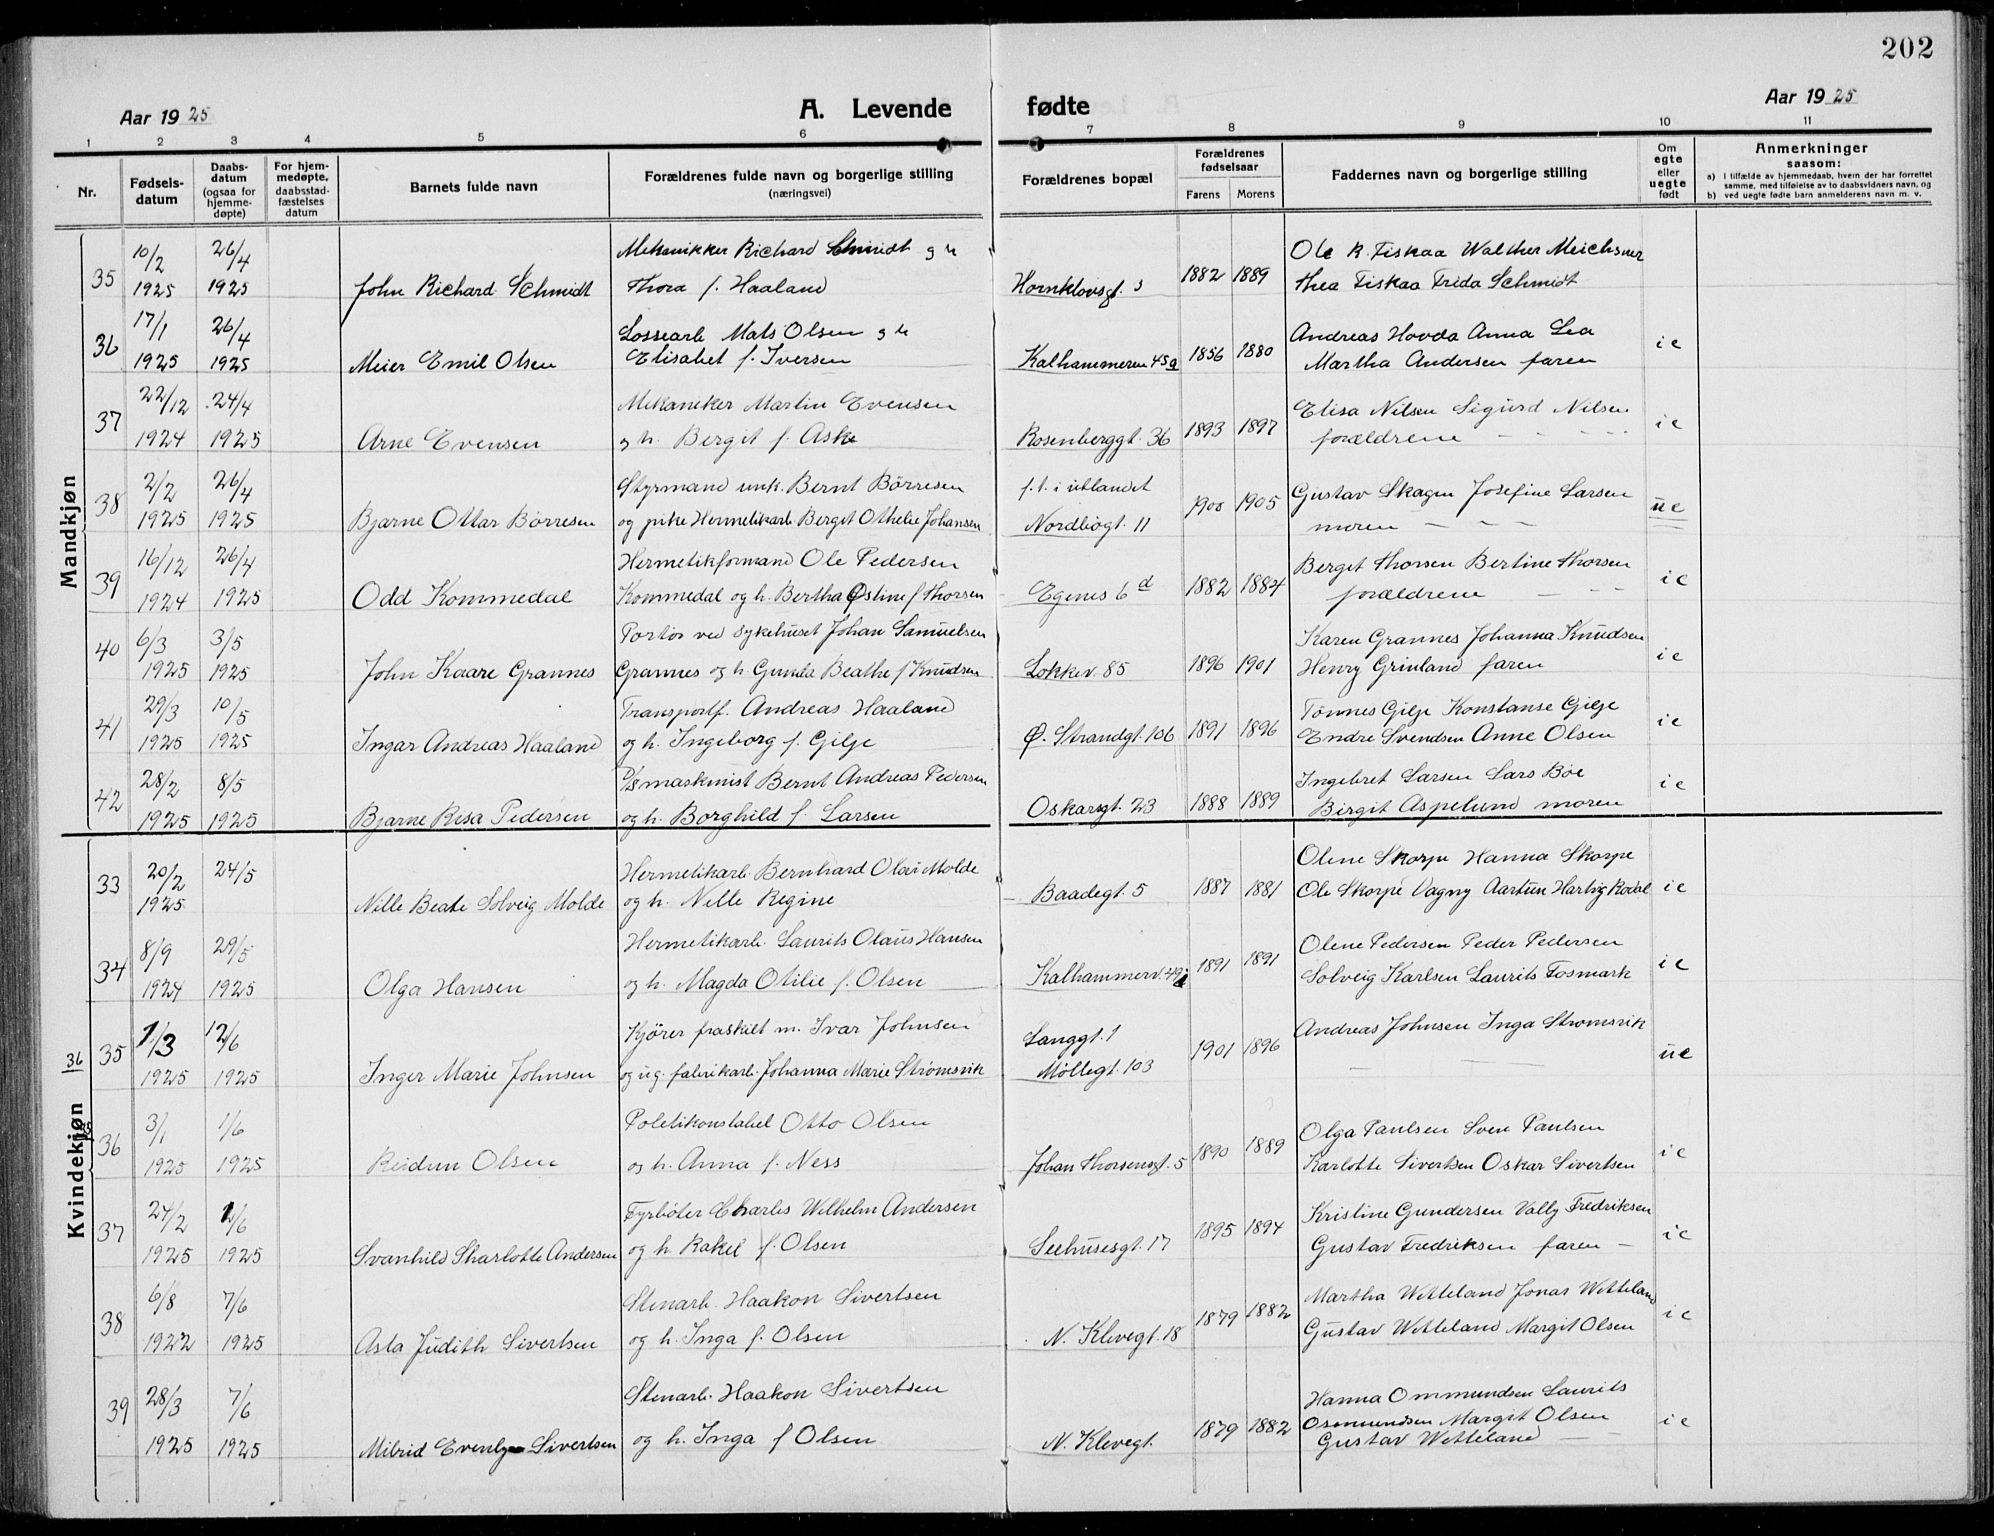 202
Aar 1925 A. Levende fødte Aar 1925
1 2 3 4 5 6 7 8 9 10 11
Nr. Fødsels-datum Daabs-datum (ogsaa for hjemme-døpte) For hjem-medøpte, daabsstad-fæstelses datum Barnets fulde navn Forældrenes fulde navn og borgerlige stilling (næringsvei) Forældrenes bopæl Forældrenes fødselsaar Farens Morens Faddernes navn og borgerlige stilling Om egte eller uegte født Anmerkninger saasom: a) i tilfælde av hjemmedaab, hvem der har forrettet samme, med tilføielse av to daabsvidners navn, og b) ved uegte fødte barn anmelderens navn m. v.
Mandkjøn
35 10/2 26/4 Mekanikker Richard Schmidt og h Ole R. Fiskaa Walther Meichsner
1925 1925 John Richard Schmidt Thora f. Haaland Hornklovsgt. 3 1882 1889 Thea Fiskaa Frida Schmidt
36 17/1 26/4 Lossearb Mats Olsen og h Andreas Hovda Anna Lea i e
1925 1925 Meier Emil Olsen Elisabet f. Iversen Kalhammeren 45a 1856 1880 Martha Andersen faren
37 22/12 24/4 Mekaneker Martin Evensen Elisa Nilsen Sigurd Nilsen i e
1924 1925 Arne Evensen og h. Bergit f. Aske Rosenberggt. 36 1893 1897 forældrene
38 2/2 26/4 Styrmand unk. Bernt Børresen f.t. i utlandet Gustav Skagen Josefine Larsen ue
1925 1925 Bjarne Ottar Børresen og pike Hermetikarb Bergit Othelie Johansen Nordbøgt. 11 1900 1905 moren
39 16/12 26/4 Hermetikformand Ole Pedersen Bergit Thorsen Bertine Thorsen i e
1924 1925 Odd Kommedal Kommedal og h. Bertha Østine f Thorsen Egenes 6 d 1882 1884 forældrene
40 6/3 3/5 Portør ved sykehuset Johan Samuelsen Karen Grannes Johanna Knudsen i e
1925 1925 John Kaare Grannes Grannes og h Gunda Beathe f Knudsen Lokkev. 85 1896 1901 Henry Grinland faren
41 29/3 10/5 Transportf. Andreas Haaland Tønnes Gilje Konstanse Gilje i e
1925 1925 Ingar Andreas Haaland og h. Ingeborg f. Gilje Ø. Strandgt. 106 1891 1896 Endre Svendsen Anne Olsen
42 28/2 8/5 D/smaskinist Bernt Andreas Pedersen Ingebret Larsen Lars Bøe i e
1925 1925 Bjarne Risa Pedersen og h. Borghild f. Larsen Oskarsgt. 23 1888 1889 Birgit Aspelund moren
Kvindekjøn
33 20/2 24/5 Hermetikarb. Bernhard Olai Molde Olene Skorpe Hanna Skorpe
1925 Nille Beate Solveig Molde og h. Nille Regine Baadegt. 5 1887 1881 Ole Skorpe Dagny Aartun Hartvig Rodal i e
34 8/9 29/5 Hermetikarb. Laurits Olaus Hansen Olene Pedersen Peder Pedersen i e
1924 1925 Olga Hansen og h. Magda Otilie f. Olsen Kalhammerv. 49 1891 1891 Solveig Karlsen Laurits Fosmark
36
35 1/3 12/6 Kjører fraskilt m. Ivar Johnsen Langgt. 1 Andreas Johnsen Inga Strømsvik ue
1925 1925 Inger Marie Johnsen og ug. fabrikarb. Johanna Marie Strømsvik Møllegt. 103 1901 1896
35
36 3/1 1/6 Politikonstabel Otto Olsen Olga Paulsen Sven Paulsen i e
1925 1925 Reidun Olsen og h. Anna f. Ness Johan Thorsensgt. 5 1890 1889 Karlotte Sivertsen Oskar Sivertsen
37 24/2 1/6 Fyrbøter Charles Wilhelm Andersen Kristine Gundersen Vally Fredriksen i e
1925 1925 Svanhild Sharlotte Andersen og h. Rakel f. Olsen Seehusesgt. 17 1895 1894 Gustav Fredriksen faren
38 6/8 7/6 Stenarb. Haakon Sivertsen Martha Wetteland Jonas Wetteland i e
1922 1925 Asta Judith Sivertsen og h. Inga f. Olsen N. Klevegt. 18 1879 1882 Gustav Wetteland Margit Olsen
39 28/3 7/6 Stenarb. Haakon Sivertsen Hanna Ommundsen Laurits
1925 1925 Milrid Evenly Sivertsen og h. Inga f Olsen N. Klevegt. 1879 1882 Ommundsen Margit Olsen i e
Gustav Wetteland